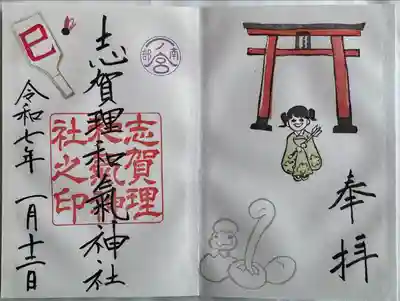 奉拝
志賀理和氣神社
志賀理
和氣神
社之印
南部
一ノ宮
巳
令和七年 一月十二日